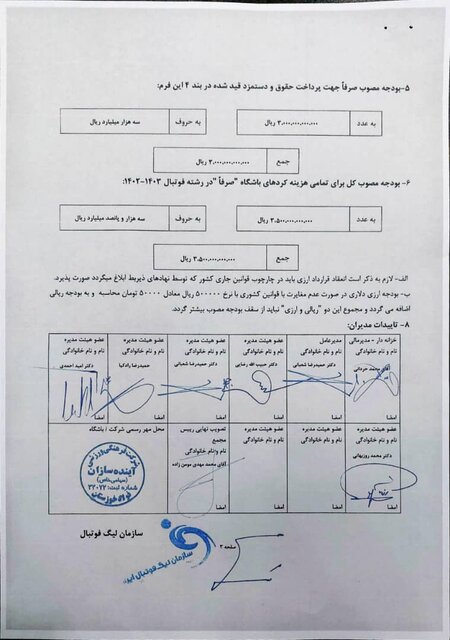 ۵-بودجه مصوب صرفاً جهت پرداخت حقوق و دستمزد قید شده در بند ۴ این فرم:
به عدد
۳.۰۰۰.۰۰۰.۰۰۰.۰۰۰ ریال
به حروف
سه هزار میلیارد ریال
جمع
۳.۰۰۰.۰۰۰.۰۰۰.۰۰۰ ریال
۶- بودجه مصوب کل برای تمامی هزینه کردهای باشگاه "صرفاً "در رشته فوتبال ۱۴۰۳-۱۴۰۲:
به عدد
۳.۵۰۰.۰۰۰.۰۰۰.۰۰۰ ریال
به حروف
سه هزار و پانصد میلیارد ریال
جمع
۳.۵۰۰.۰۰۰.۰۰۰.۰۰۰ ریال
الف- لازم به ذکر است انعقاد قرارداد ارزی باید در چارچوب قوانین جاری کشور که توسط نهادهای ذیربط ابلاغ میگردد صورت پذیرد.
ب- بودجه ارزی دلاری در صورت عدم مغایرت با قوانین کشوری با نرخ ۵۰۰۰۰۰ ریال معادل ۵۰۰۰۰ تومان محاسبه و به بودجه ریالی
اضافه می گردد و مجموع این دو "ریالی و ارزی" نباید از سقف بودجه مصوب بیشتر گردد.
۸- تاییدات مدیران:
خزانه دار - مدیرمالی
نام و نام خانوادگی
آقای محمد
امضا
مدیرعامل
نام و نام خانوادگی
دکتر حمیدرضا شعبانی
امضا
عضو هیئت مدیره
نام و نام خانوادگی
دکتر حبیب الله رضایی
امضا
عضو هیئت مدیره
نام و نام خانوادگی
دکتر حمیدرضا شعبانی
امضا
عضو هیئت مدیره
نام و نام خانوادگی
حمیدرضا رادکیا
امضا
عضو هیئت مدیره
نام و نام خانوادگی
دکتر امید احمدی
امضا
عضو هیئت مدیره
نام و نام خانوادگی
دکتر محمد روزبهانی
امضا
عضو هیئت مدیره
نام و نام خانوادگی
امضا
عضو هیئت مدیره
نام و نام خانوادگی
امضا
تصویب نهایی رییس
مجمع
نام ونام خانوادگی
آقای محمد مهدی مومن زاده
امضا
محل مهر رسمی شرکت / باشگاه
شرکت فرهنگی ورزشی
آینده سازان
(سهامی خاص)
شماره ثبت: ۳۲۰۷۲
فولاد خوزستان
سازمان لیگ فوتبال
صفحه ۳
سازمان لیگ فوتبال ایران